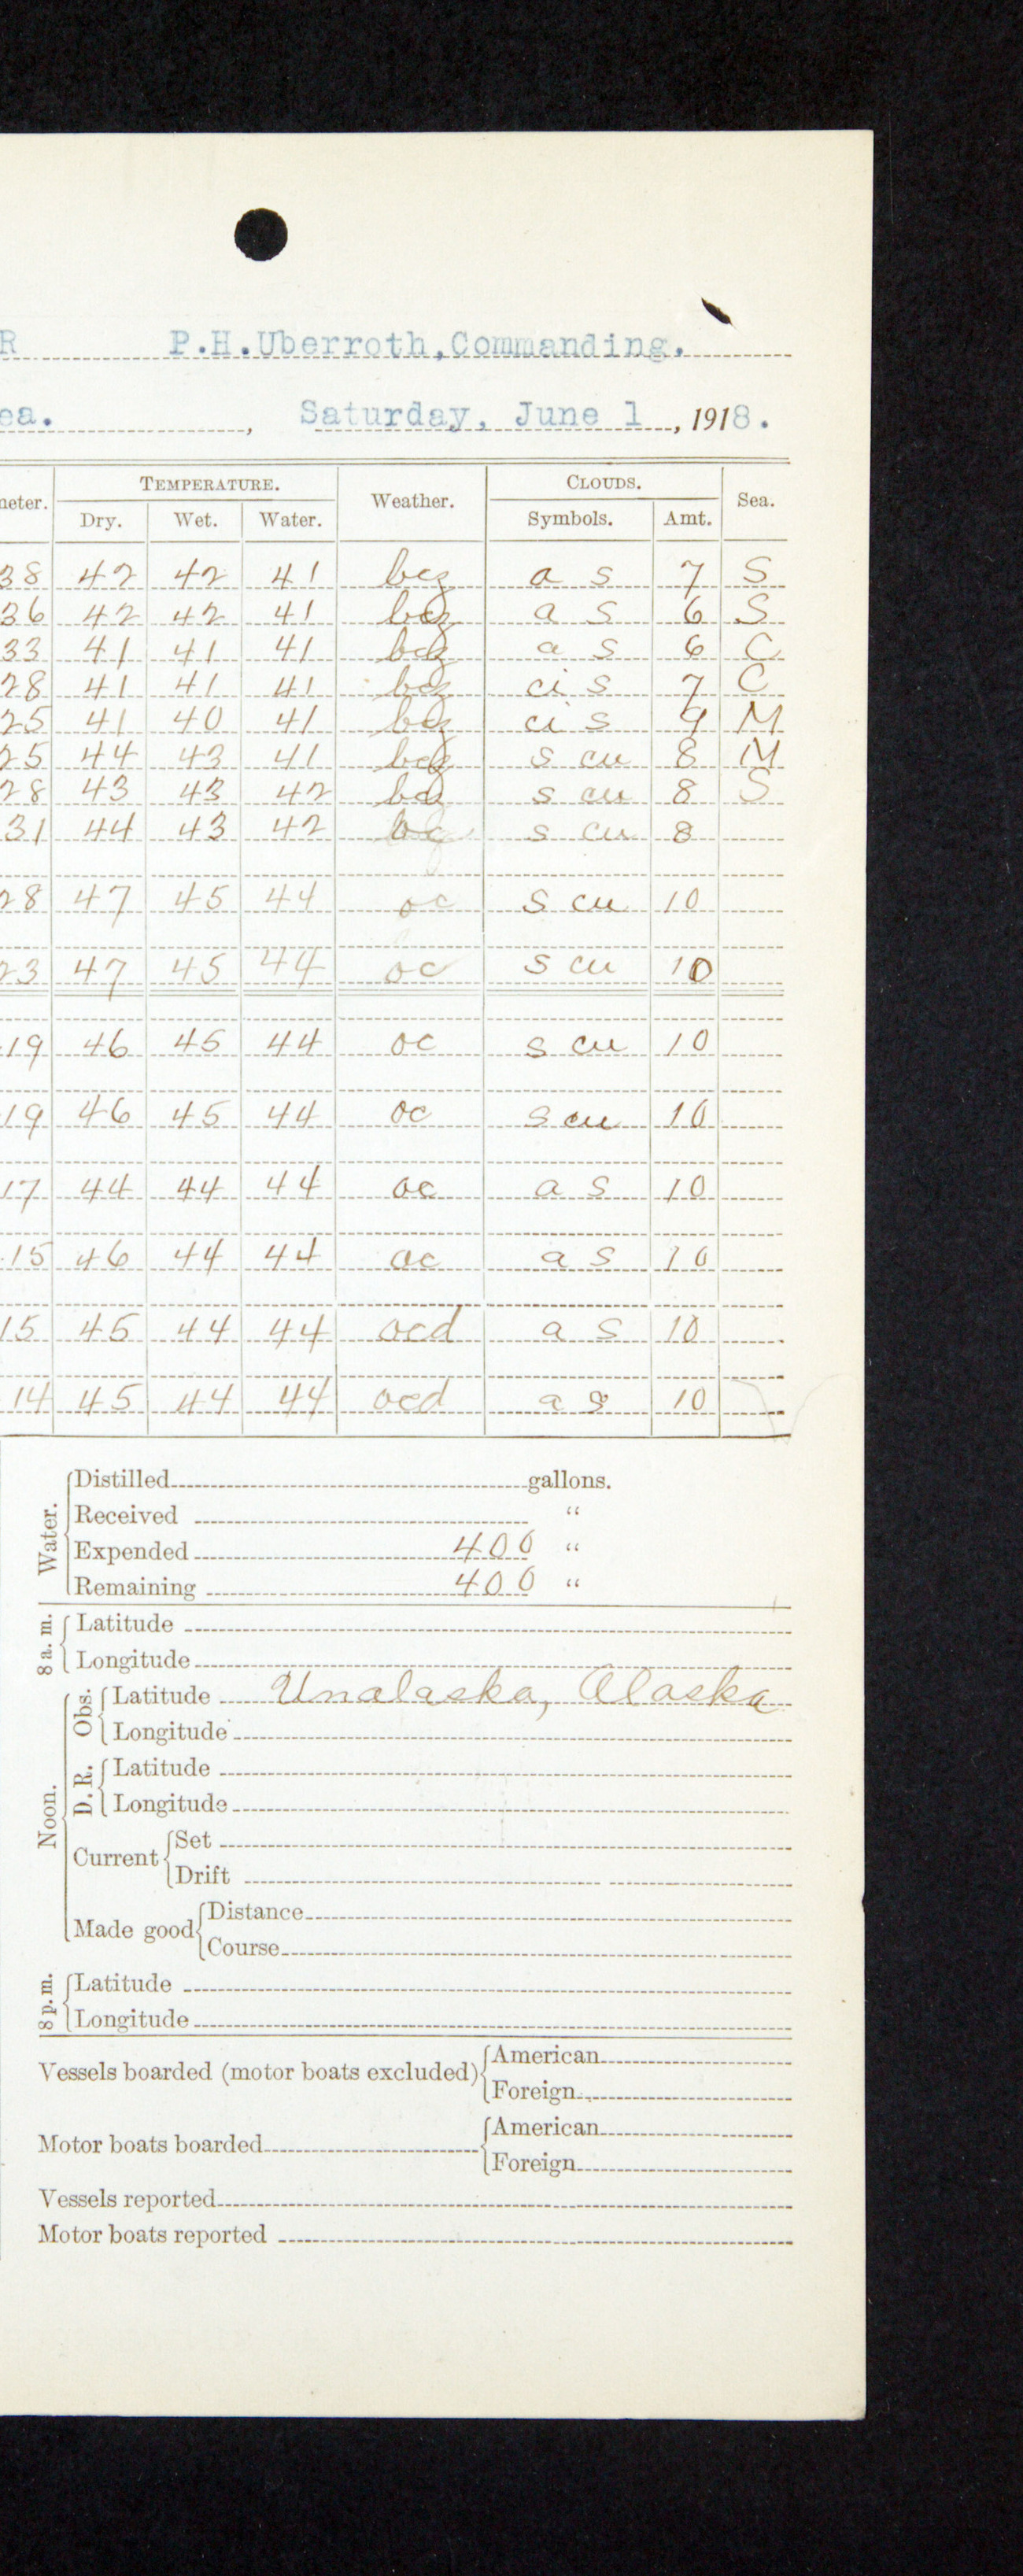 R P.H.Uberroth,Commanding.
ea. , Saturday, June 1 , 1918.
neter. TEMPERATURE. Weather. CLOUDS. Sea.
Dry. Wet. Water. Symbols. Amt.
38 42 42 41 bcz a s 7 S
36 42 42 41 a s 6 S
33 41 41 41 a s 6 C
28 41 41 41 ci s 7 C
25 41 40 41 ci s 9 M
25 44 43 41 s cu 8 M
28 43 43 42 s cu 8 S
31 44 43 42 s cu 8
28 47 45 44 oc s cu 10
23 47 45 44 oc s cu 10
19 46 45 44 oc s cu 10
19 46 45 44 oc s cu 10
17 44 44 44 oc a s 10
15 46 44 44 oc a s 10
15 45 44 44 ocd a s 10
14 45 44 44 ocd a s 10
Water.
Distilled gallons.
Received "
Expended 400 "
Remaining 400 "
8 a. m.
Latitude
Longitude
Noon.
Obs.
Latitude Unalaska, Alaska
Longitude
D. R.
Latitude
Longitude
Current
Set
Drift
Made good
Distance
Course
8 p. m.
Latitude
Longitude
Vessels boarded (motor boats excluded)
American
Foreign
Motor boats boarded
American
Foreign
Vessels reported
Motor boats reported